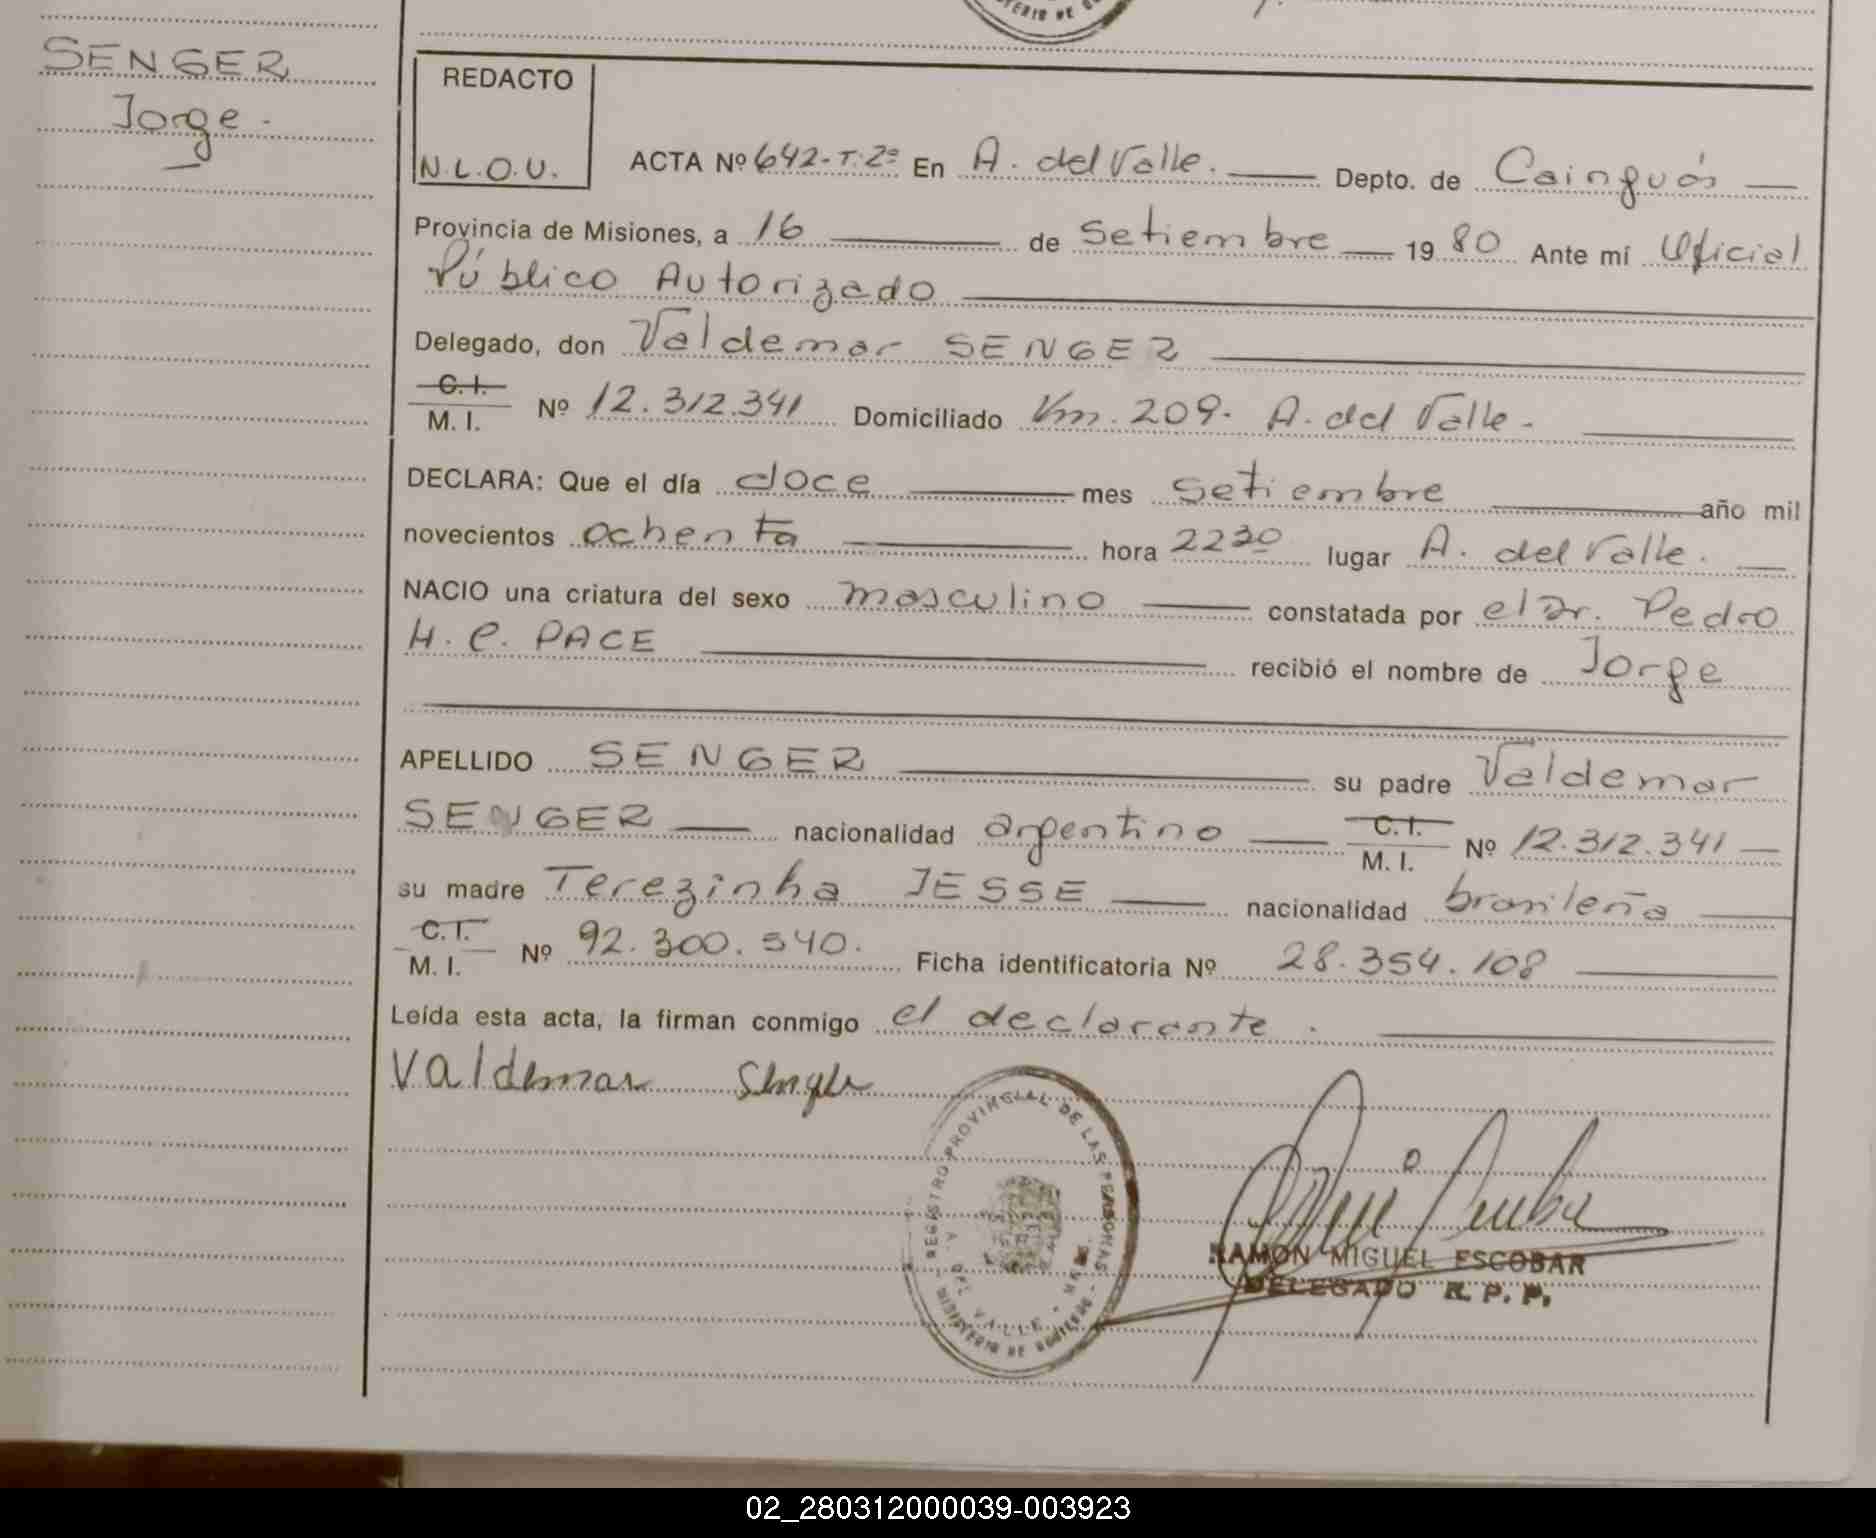 SENGER
Jorge.-
REDACTO
N.L.O.U.
ACTA Nº 642-T.2º En A. del Valle. Depto. de Cainguás
Provincia de Misiones, a 16 de Setiembre 1980 Ante mí Oficial
Público Autorizado
Delegado, don Valdemar SENGER
C.I.
M. I. Nº 12.312.341 Domiciliado Km. 209. A. del Valle.-
DECLARA: Que el día doce mes Setiembre año mil
novecientos ochenta hora 2230 lugar A. del Valle.
NACIO una criatura del sexo masculino constatada por el Dr. Pedro
H. C. PACE recibió el nombre de Jorge
APELLIDO SENGER su padre Valdemar
SENGER nacionalidad argentino C.I. M. I. Nº 12.312.341
su madre Terezinha JESSE nacionalidad brasileña
C.I.
M. I. Nº 92.300.540. Ficha identificatoria Nº 28.354.108
Leída esta acta, la firman conmigo el declarante.
Valdemar Senger
REGISTRO PROVINCIAL DE LAS PERSONAS
A. DEL VALLE - MNES.
MINISTERIO DE GOBIERNO
RAMON MIGUEL ESCOBAR
DELEGADO R. P. P.
02_280312000039-003923